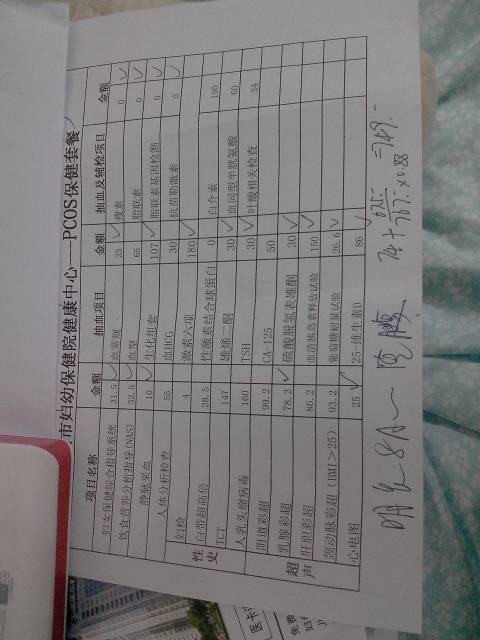 市妇幼保健院健康中心---PCOS保健套餐
项目名称 金额 抽血项目 金额 抽血及辅检项目 金额
妇女保健综合指导系统 31.5 ✓ 血常规 25 ✓ 瘦素 0 ✓
饮食营养分析指导(NAS) 32.5 ✓ 血型 65 脂联素 0 ✓
静脉采血 10 ✓ 生化组套 107 ✓ 脂联素基因检测 0 ✓
人体分析检查 55 血HCG 30 抗苗勒激素 0 ✓
性史 妇检 4 激素六项 180 ✓
白带超高倍 28.5 性激素结合球蛋白 0 白介素 190
TCT 147 雄烯二酮 30 ✓ 血同型半胱氨酸 60
人乳头瘤病毒 160 TSH 30 ✓ 叶酸相关检查 24
超声 阴道彩超 99.2 CA-125 50
乳腺彩超 78.2 ✓ 硫酸脱氢表雄酮 30 ✓
肝胆彩超 86.2 血清胰岛素释放试验 150 ✓
颈动脉彩超 (BMI>25) 93.2 葡萄糖耐量试验 26.6 ✓
心电图 25 ✓ 25-维生素D 86 ✓